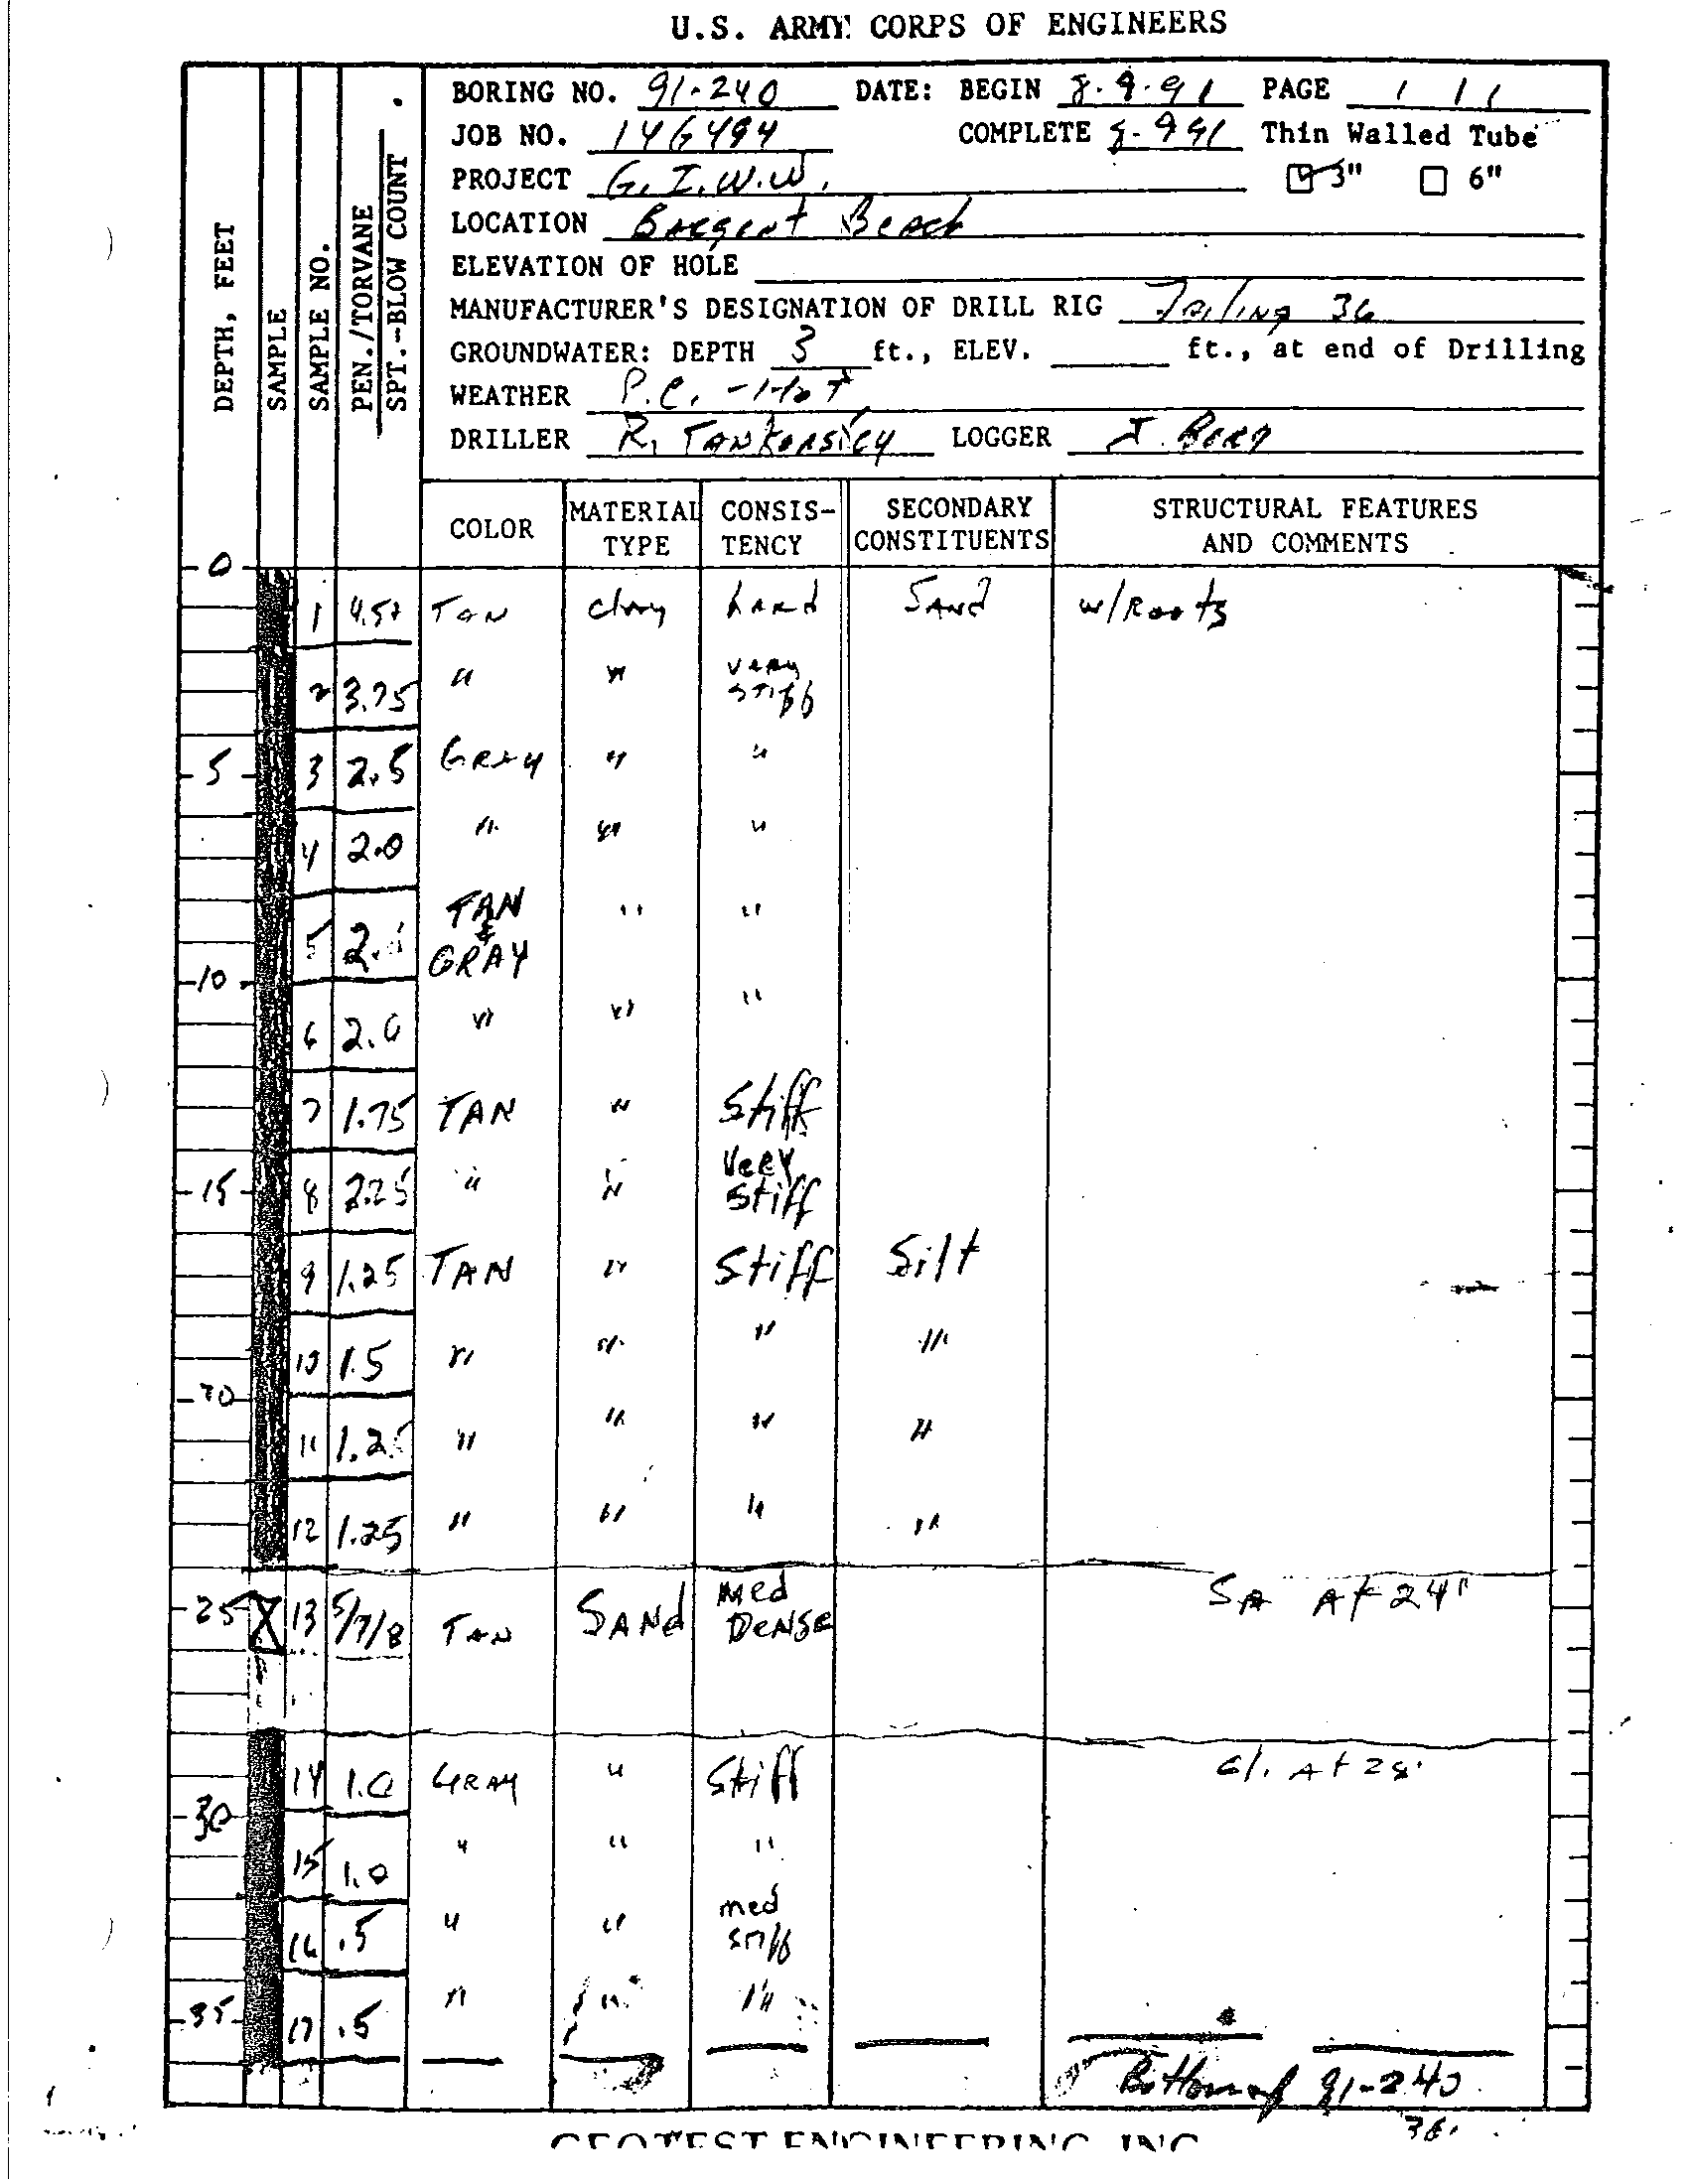 U.S. ARMY CORPS OF ENGINEERS
BORING NO. 91-240 DATE: BEGIN 8-9-91 PAGE 1 / 1
JOB NO. 14G494 COMPLETE 8-9 91 Thin Walled Tube
PROJECT G.I.W.W. ☑ 3" ☐ 6"
LOCATION Beach
ELEVATION OF HOLE
MANUFACTURER'S DESIGNATION OF DRILL RIG Failing 36
GROUNDWATER: DEPTH 3 ft., ELEV. ft., at end of Drilling
WEATHER P.C. - Hot
DRILLER R. TANKERSLEY LOGGER J. Berg
DEPTH, FEET
SAMPLE
SAMPLE NO.
PEN./TORVANE
SPT.-BLOW COUNT
COLOR MATERIAL TYPE CONSIS-TENCY SECONDARY CONSTITUENTS STRUCTURAL FEATURES AND COMMENTS
0
1 4.5+ TAN clay hARd SANd w/Roots
2 3.75 " " very stiff
5 3 2.5 GRAY " "
4 2.0 " " "
5 2. TAN & GRAY " "
10
6 2.0 " " "
7 1.75 TAN " Stiff
15 8 2.25 " " Very Stiff
9 1.25 TAN " Stiff Silt
10 1.5 " " " "
20
11 1.25 " " " "
12 1.25 " " " "
SA At 24'
25 13 5/7/8 TAN SANd Med DeNSe
14 1.0 GRAY " Stiff Cl. At 28'
30
15 1.0 " " "
16 .5 " " med stiff
35 17 .5 " " "
Bottom of 91-240
36'
GEOTEST ENGINEERING, INC